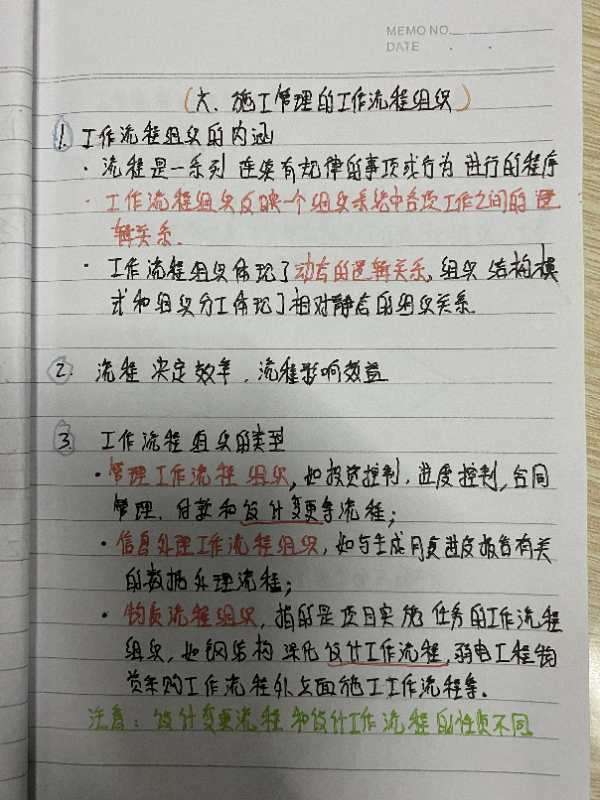 MEMO NO.
DATE . .
(六、施工管理的工作流程组织)
1. 工作流程组织的内涵
· 流程是一系列连续有规律的事项或行为进行的程序
· 工作流程组织反映一个组织系统中各项工作之间的逻
辑关系.
· 工作流程组织体现了动态的逻辑关系,组织结构模
式和组织分工体现了相对静态的组织关系.
2. 流程决定效率,流程影响效益
3. 工作流程组织的类型
· 管理工作流程组织,如投资控制,进度控制,合同
管理、付款和设计变更等流程;
· 信息处理工作流程组织,如与生成月度进度报告有关
的数据处理流程;
· 物质流程组织,指的是项目实施任务的工作流程
组织,如钢结构深化设计工作流程,弱电工程物
资采购工作流程外立面施工工作流程等.
注意:设计变更流程和设计工作流程的性质不同